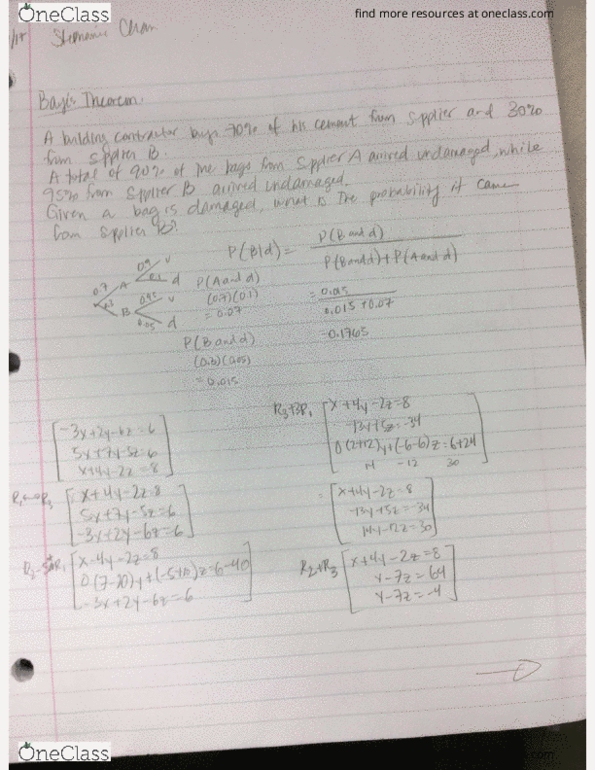 OneClass
find more resources at oneclass.com
Stephanie Chan
Baye's Theorem:
A building contractor buys 70% of his cement from supplier and 30%
from supplier B.
A total of 90% of the bags from Supplier A arrived undamaged, while
95% from Supplier B arrived undamaged.
Given a bag is damaged, what is the probability it came
from supplier B?
P(B|d) = P(B and d)
P(B and d) + P(A and d)
0.7 A 0.9 u
0.1 d
B u
0.05 d
P(A and d)
(0.7)(0.1)
= 0.07
= 0.015
0.015 + 0.07
= 0.1765
P(B and d)
(0.3)(0.05)
= 0.015
-3x+2y-6z=6
5x+7y-5z=6
x+4y-2z=8
x+4y-2z=8
5x+7y-5z=6
-3x+2y-6z=6
x-4y-2z=8
0(7-20)y+(-5+10)z=6-40
-3x+2y-6z=6
R3+3R1
x+4y-2z=8
-13y+5z=-34
0(2+12)y+(-6-6)z=6+24
14 -12 30
x+4y-2z=8
-13y+5z=-34
14y-12z=30
R2+R3
x+4y-2z=8
y-7z=64
y-7z=-4
OneClass